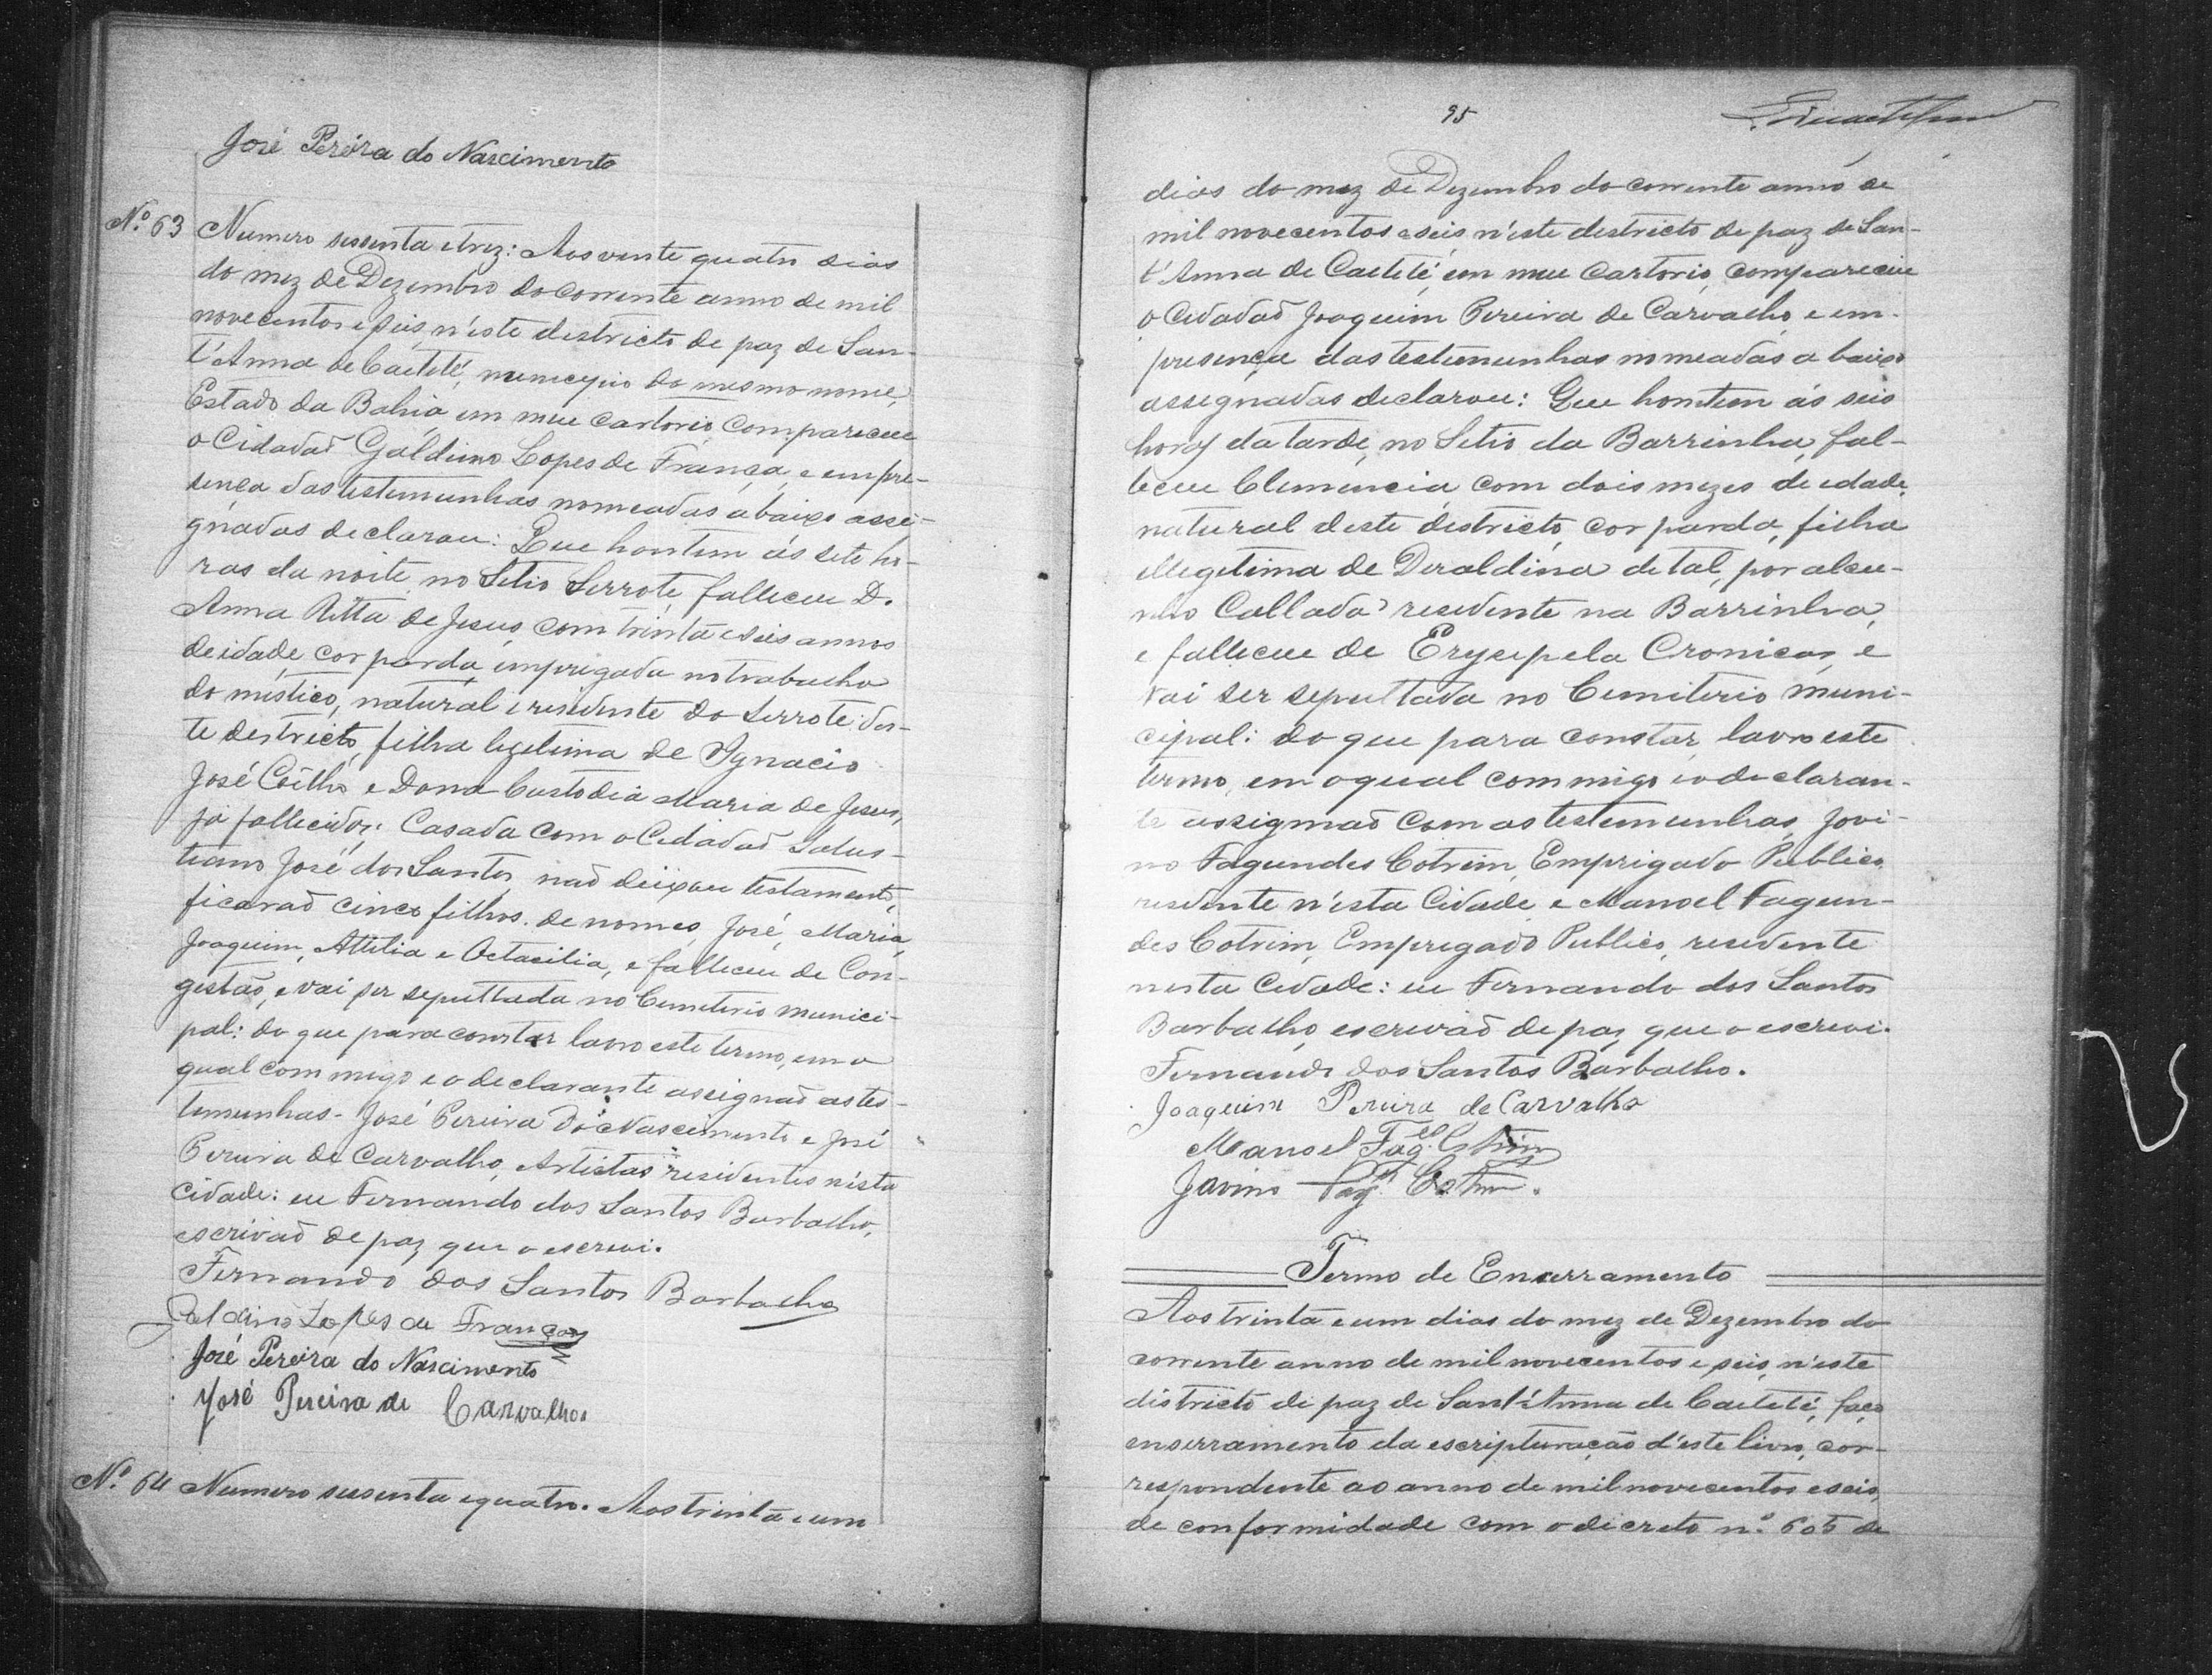 José Pereira do Nascimento
Nº 63 Numero sessenta e trez: Aos vente quatro dias
do mez de Dezembro do corrente anno de mil
novecentos e seis, n'este destricto de paz de San-
t'Anna de Caeteté, municipio do mesmo nome,
Estado da Bahia, em meu cartorio compareceu
o Cidadaõ Galdino Lopes de França, e em pre-
sença das testemunhas nomeadas abaixo assi-
gnadas declarou: Que hontem ás sete ho-
ras da noite, no Setio Serrote, falleceu D.
Anna Ritta de Jesus, com trinta e seis annos
de idade, cor parda, impregada no trabalho
do mistico, natural e residente do Serrote des-
te destricto, filha legitima de Ignacio
José Coêlho e Dona Custodia Maria de Jesus,
ja fallecidos: Casada com o Cidadaõ Salus-
tiano José dos Santos, naõ deixou testamento,
ficaraõ cinco filhos. de nomes, José, Maria,
Joaquim, Attilia e Octacilia, e falleceu de Con-
gestaõ, e vai ser sepultada no Cemiterio munici-
pal: do que para constar lavro este termo, em o
qual commigo e o declarante assignaõ as tes-
temunhas - José Pereira do Nascimento e José
Pereira de Carvalho, Artistas residentes n'esta
cidade: eu Fernando dos Santos Barbalho,
escrivaõ de paz que o escrevi.
Fernando dos Santos Barbalho
Galdino Lopes de França
José Pereira do Nascimento
José Pereira de Carvalho
Nº 64 Numero sessenta e quatro. Aos trinta e um
95
dias do mez de Dezembro do corrente anno de
mil novecentos e seis, n'este destricto de paz de San-
t'Anna de Caeteté, em meu cartorio, compareceu
o Cidadaõ Joaquim Pereira de Carvalho, e em
presença das testemunhas nomeadas a baixo
assegnadas declarou: Que hontem ás seis
horas da tarde, no Setio da Barrinha, fal-
leceu Clemencia, com dois mezes de edade,
natural deste destricto, cor parda, filha
illegetima de Deraldina de tal, por alcu-
nho Callada residente na Barrinha,
e falleceu de Erysepela Cronicas, e
vai ser sepultada no Cemiterio muni-
cipal: do que para constar, lavro este
termo, em o qual commigo e o declaran-
te assignaõ com as testemunhas, Jovi-
no Fagundes Cotrim, Emprigado Publico,
residente n'esta Cidade e Manoel Fagun-
des Cotrim, Empregado Publico, residente
nesta Cidade: eu Fernando dos Santos
Barbalho, escrivaõ de paz que o escrevi.
Fernando dos Santos Barbalho.
Joaquim Pereira de Carvalho
Manoel Fag.es Cotrim
Jovino Fag.es Cotrim.
Termo de Encerramento
Aos trinta e um dias do mez de Dezembro do
corrente anno de mil novecentos e seis, n'este
districto de paz de Sant'Anna de Caeteté, faço
enserramento da escripturação d'este livro, cor-
respondente ao anno de mil novecentos e seis,
de conformidade com o decreto nº 605 de